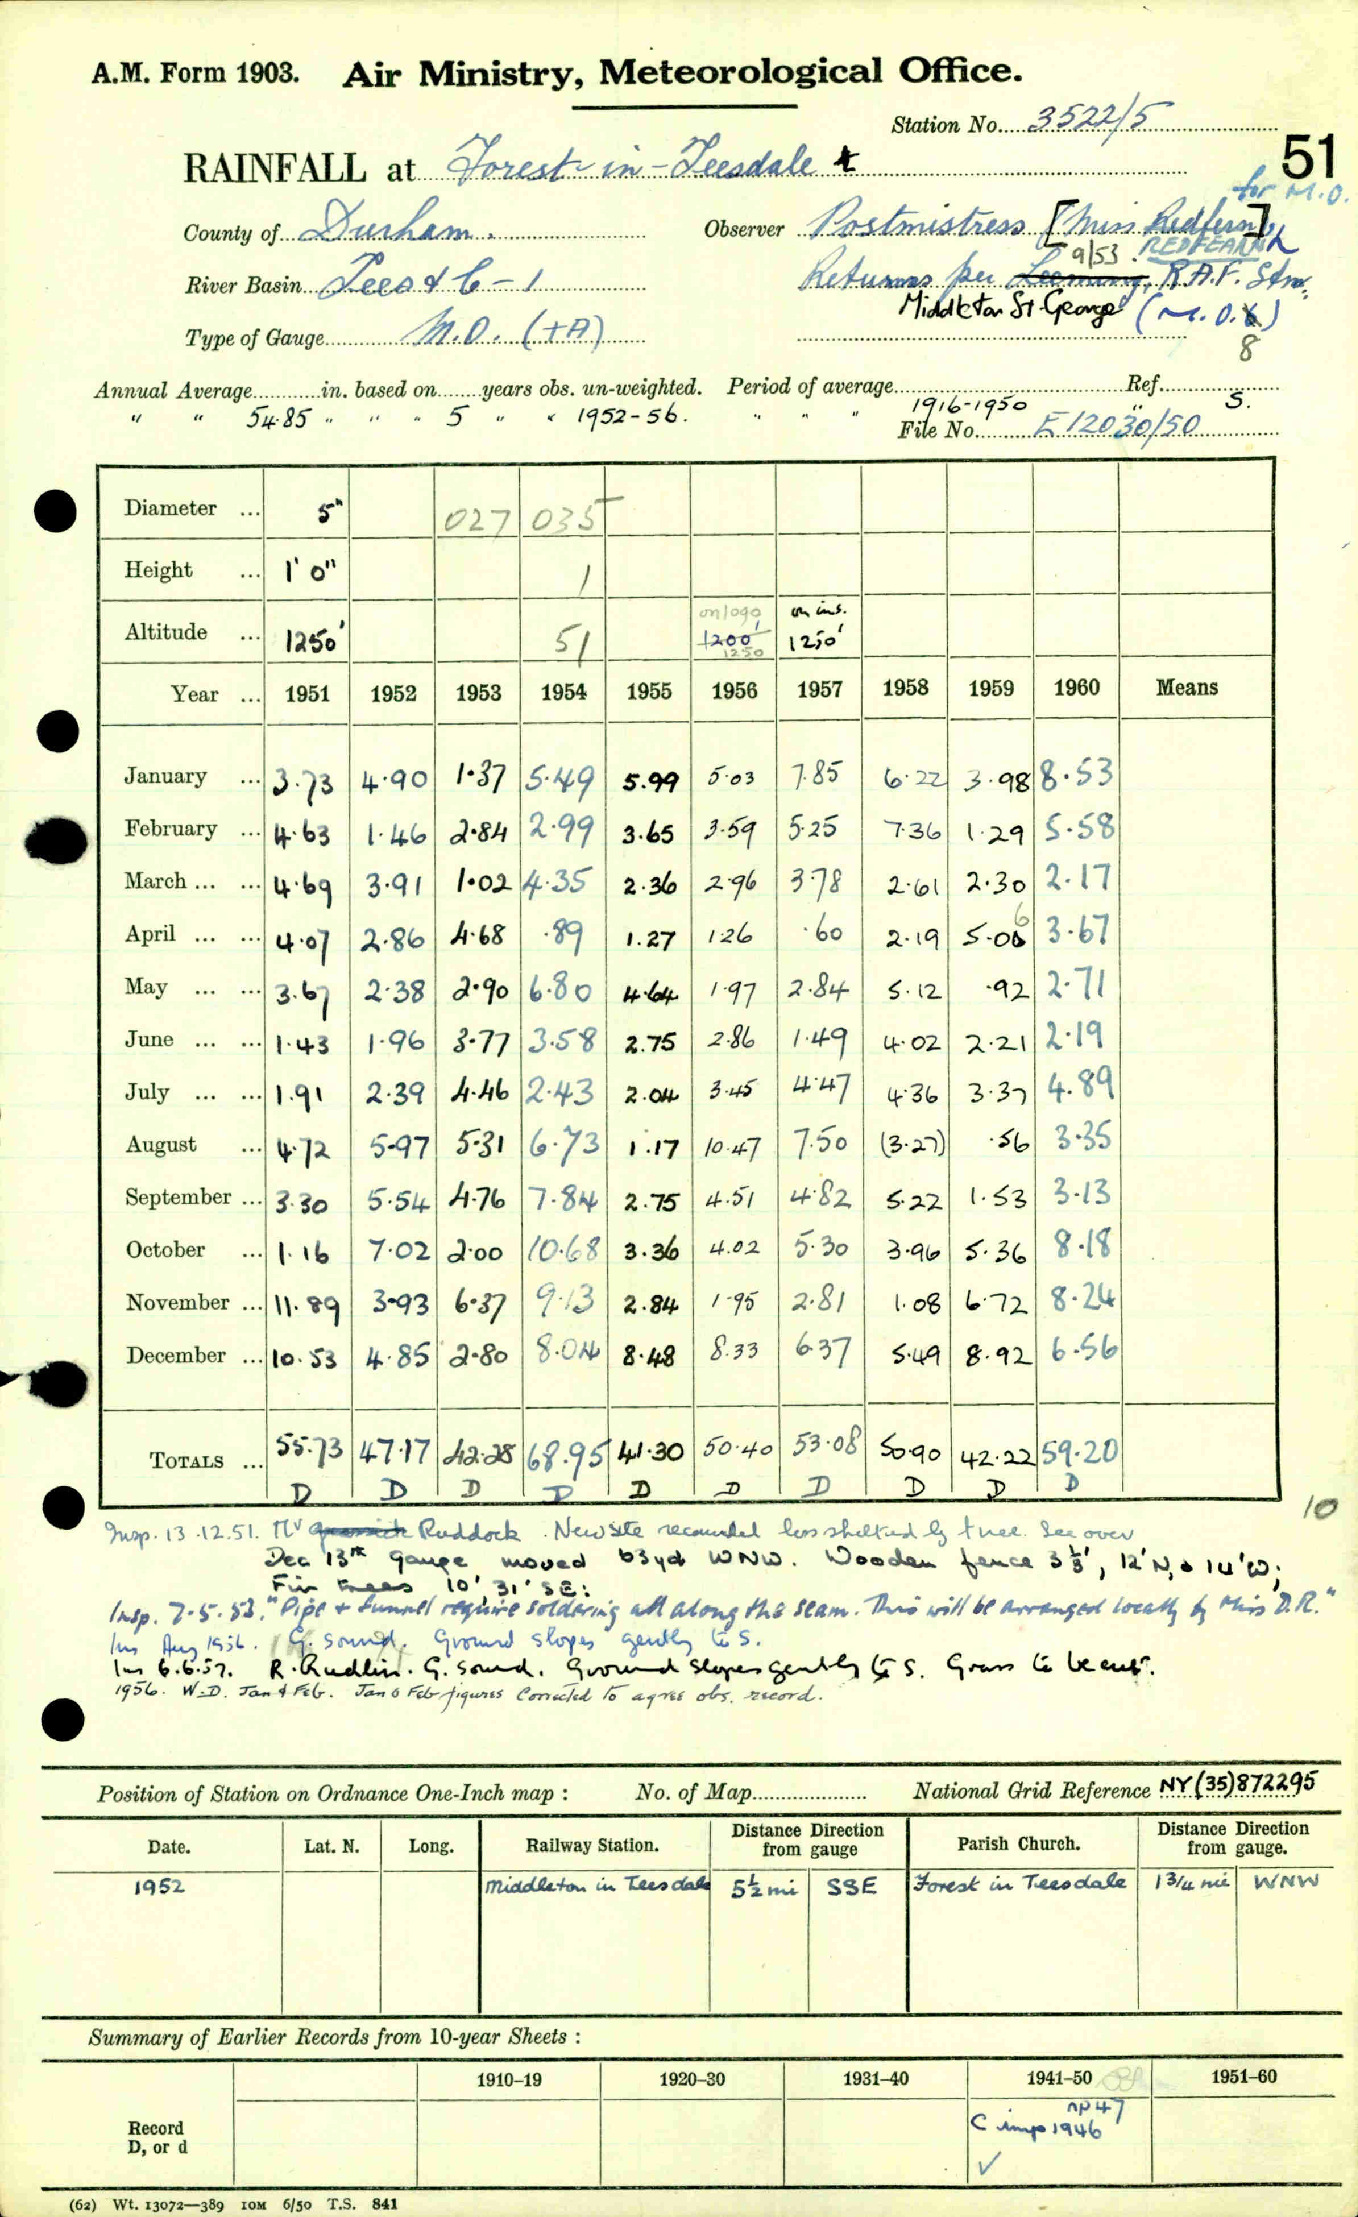 A.M. Form 1903. Air Ministry, Meteorological Office.
Station No. 3522/5
51
RAINFALL at Forest-in-Teesdale
for M.O.
County of Durham.
Observer Postmistress [Miss Redfern]
9/53. REDFEARN
River Basin Tees & C-1
Returns per Leeming, R.A.F. Stn.
Middleton St. George (M.O.6)
8
Type of Gauge M.O. (+A)
Annual Average in. based on years obs. un-weighted. Period of average Ref.
" " 54.85 " " " 5 " " 1952-56. " " " 1916-1950 " S.
File No. E/12030/50
Diameter ... 5" 027 035
Height ... 1' 0" 1
Altitude ... 1250' 51 on 1090 1200' 1250 on ins. 1250'
Year ... 1951 1952 1953 1954 1955 1956 1957 1958 1959 1960 Means
January ... 3.73 4.90 1.37 5.49 5.99 5.03 7.85 6.22 3.98 8.53
February ... 4.63 1.46 2.84 2.99 3.65 3.59 5.25 7.36 1.29 5.58
March ... ... 4.69 3.91 1.02 4.35 2.36 2.96 3.78 2.61 2.30 2.17
April ... ... 4.07 2.86 4.68 .89 1.27 1.26 .60 2.19 5.06 3.67
May ... ... 3.67 2.38 2.90 6.80 4.64 1.97 2.84 5.12 .92 2.71
June ... ... 1.43 1.96 3.77 3.58 2.75 2.86 1.49 4.02 2.21 2.19
July ... ... 1.91 2.39 4.46 2.43 2.04 3.45 4.47 4.36 3.37 4.89
August ... 4.72 5.97 5.31 6.73 1.17 10.47 7.50 (3.27) .56 3.35
September ... 3.30 5.54 4.76 7.84 2.75 4.51 4.82 5.22 1.53 3.13
October ... 1.16 7.02 2.00 10.68 3.36 4.02 5.30 3.96 5.36 8.18
November ... 11.89 3.93 6.37 9.13 2.84 1.95 2.81 1.08 6.72 8.24
December ... 10.53 4.85 2.80 8.04 8.48 8.33 6.37 5.49 8.92 6.56
TOTALS ... 55.73 47.17 42.28 68.95 41.30 50.40 53.08 50.90 42.22 59.20
D D D D D D D D D D
10
Insp. 13.12.51. Mr Ruddock. New site recommended less sheltered by trees. See over
Dec 13th gauge moved 63yd WNW. Wooden fence 3½', 12'N, & 14'W;
Fir trees 10', 31' SE:
Insp. 7.5.53. "Pipe + funnel require soldering all along the seam. This will be arranged locally by Miss D.R."
Ins Aug 1956. G. sound. Ground slopes gently to S.
Ins 6.6.57. R. Rudlin. G. sound. Ground slopes gently to S. Grass to be cut.
1956. W-D. Jan & Feb. Jan & Feb figures Corrected to agree obs. record.
Position of Station on Ordnance One-Inch map : No. of Map National Grid Reference NY(35)872295
Date. Lat. N. Long. Railway Station. Distance Direction from gauge Parish Church. Distance Direction from gauge.
1952 Middleton in Teesdale 5½ mi SSE Forest in Teesdale 1 3/4 mi WNW
Summary of Earlier Records from 10-year Sheets :
1910–19 1920–30 1931–40 1941–50 1951–60
Record
D, or d
np 47
C imp 1946
✓
(62) Wt. 13072—389 10M 6/50 T.S. 841